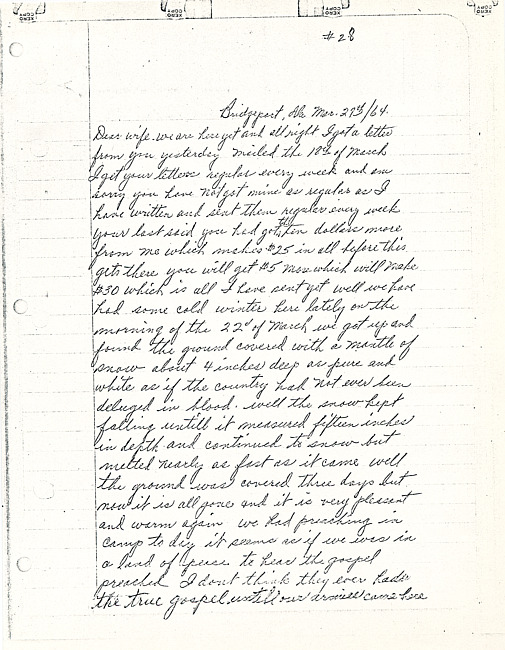 # 28
Bridgeport, Ala Mar. 27th/64.
Dear wife. we are here yet and all right I got a letter
from you yesterday mailed the 18th of March
I get your letters regular every week and am
sorry you have not got mine as regular as I
have written and sent them regular every week
your last said you had got the ten dollars more
from me which makes $25 in all before this
gets there you will get $5 more which will make
$30 which is all I have sent yet well we have
had some cold winter here lately on the
morning of the 22d of March we got up and
found the ground covered with a mantle of
snow about 4 inches deep as pure and
white as if the country had not ever been
deluged in blood. well the snow kept
falling untill it measured fifteen inches
in depth and continued to snow but
melted nearly as fast as it came well
the ground was covered three days but
now it is all gone and it is very pleasent
and warm again we had preaching in
camp to day it seems as if we was in
a land of peace to hear the gospel
preached I dont think they ever had
the true gospel untill our armies came here